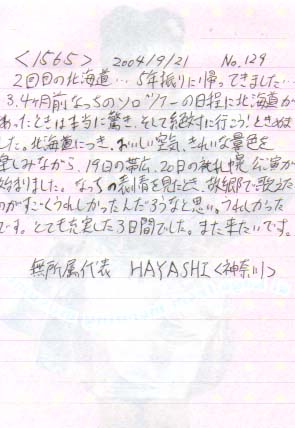 <1565> 2004/9/21 No.129
2回目の北海道… 5年振りに帰ってきました…
3.4ヶ月前なっちのソロツアーの日程に北海道が
あったときは本当に驚き、そして絶対に行こう!ときめま
した。北海道につき、おいしい空気、きれいな景色を
楽しみながら、19日の帯広、20日の札幌公演が
始まりました。なっちの表情を見たとき、故郷で歌えた
のがすごくうれしかったんだろうなと思い、うれしかった
です。とても充実した3日間でした。また来たいです。
無所属代表 HAYASHI<神奈川>